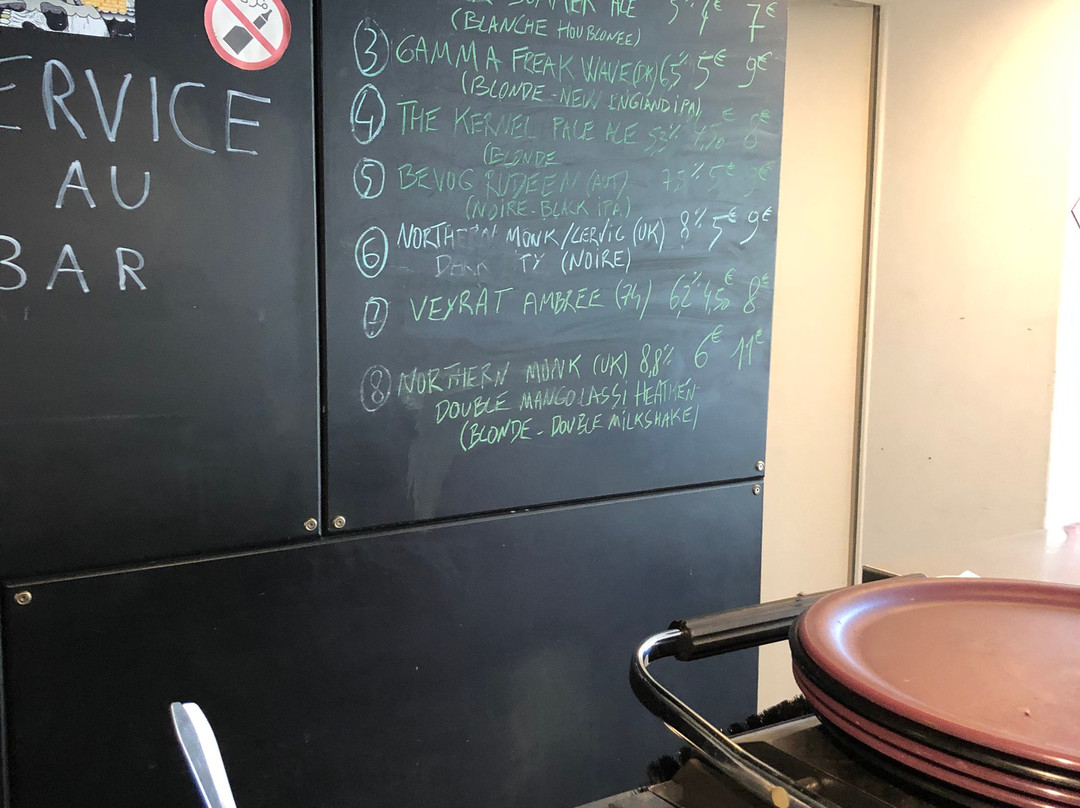 ERVICE
AU
BAR
SUMMER ALE 5% 4€ 7€
(BLANCHE HOUBLONEE)
③ GAMMA FREAK WAVE (DK) 6,5% 5€ 9€
(BLONDE - NEW ENGLAND IPA)
④ THE KERNEL PALE ALE 5,3% 4,50€ 8€
(BLONDE
⑤ BEVOG RUDEEN (AUT) 7,5% 5€ 9€
(NOIRE - BLACK IPA)
⑥ NORTHERN MONK/LERVIG (UK) 8% 5€ 9€
TY (NOIRE)
⑦ VEYRAT AMBREE (74) 6,2% 4,50€ 8€
⑧ NORTHERN MONK (UK) 8,8% 6€ 11€
DOUBLE MANGO LASSI HEATHEN
(BLONDE - DOUBLE MILKSHAKE)